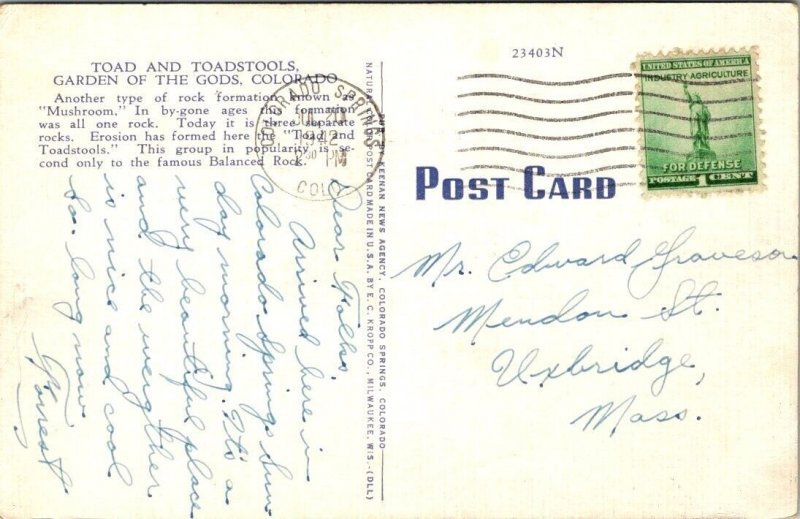 TOAD AND TOADSTOOLS,
GARDEN OF THE GODS, COLORADO
Another type of rock formation known as
"Mushroom." In by-gone ages this formation
was all one rock. Today it is three separate
rocks. Erosion has formed here the "Toad and
Toadstools." This group in popularity is se-
cond only to the famous Balanced Rock.
Dear Folks,
Arrived here in
Colorado Springs Sun-
day morning. It's a
very beautiful place
and the weagther
is nice and cool
So long now
Forrest
PUB. BY KEENAN NEWS AGENCY, COLORADO SPRINGS, COLORADO
NATURAL COLOR POST CARD MADE IN U.S.A. BY E. C. KROPP CO., MILWAUKEE, WIS.-(DLL)
COLORADO SPRINGS
JUL 20
1942
PM
COLO.
23403N
UNITED STATES OF AMERICA
INDUSTRY AGRICULTURE
FOR DEFENSE
POSTAGE 1 CENT
POST CARD
Mr. Edward Graveson
Mendon St.
Uxbridge,
Mass.